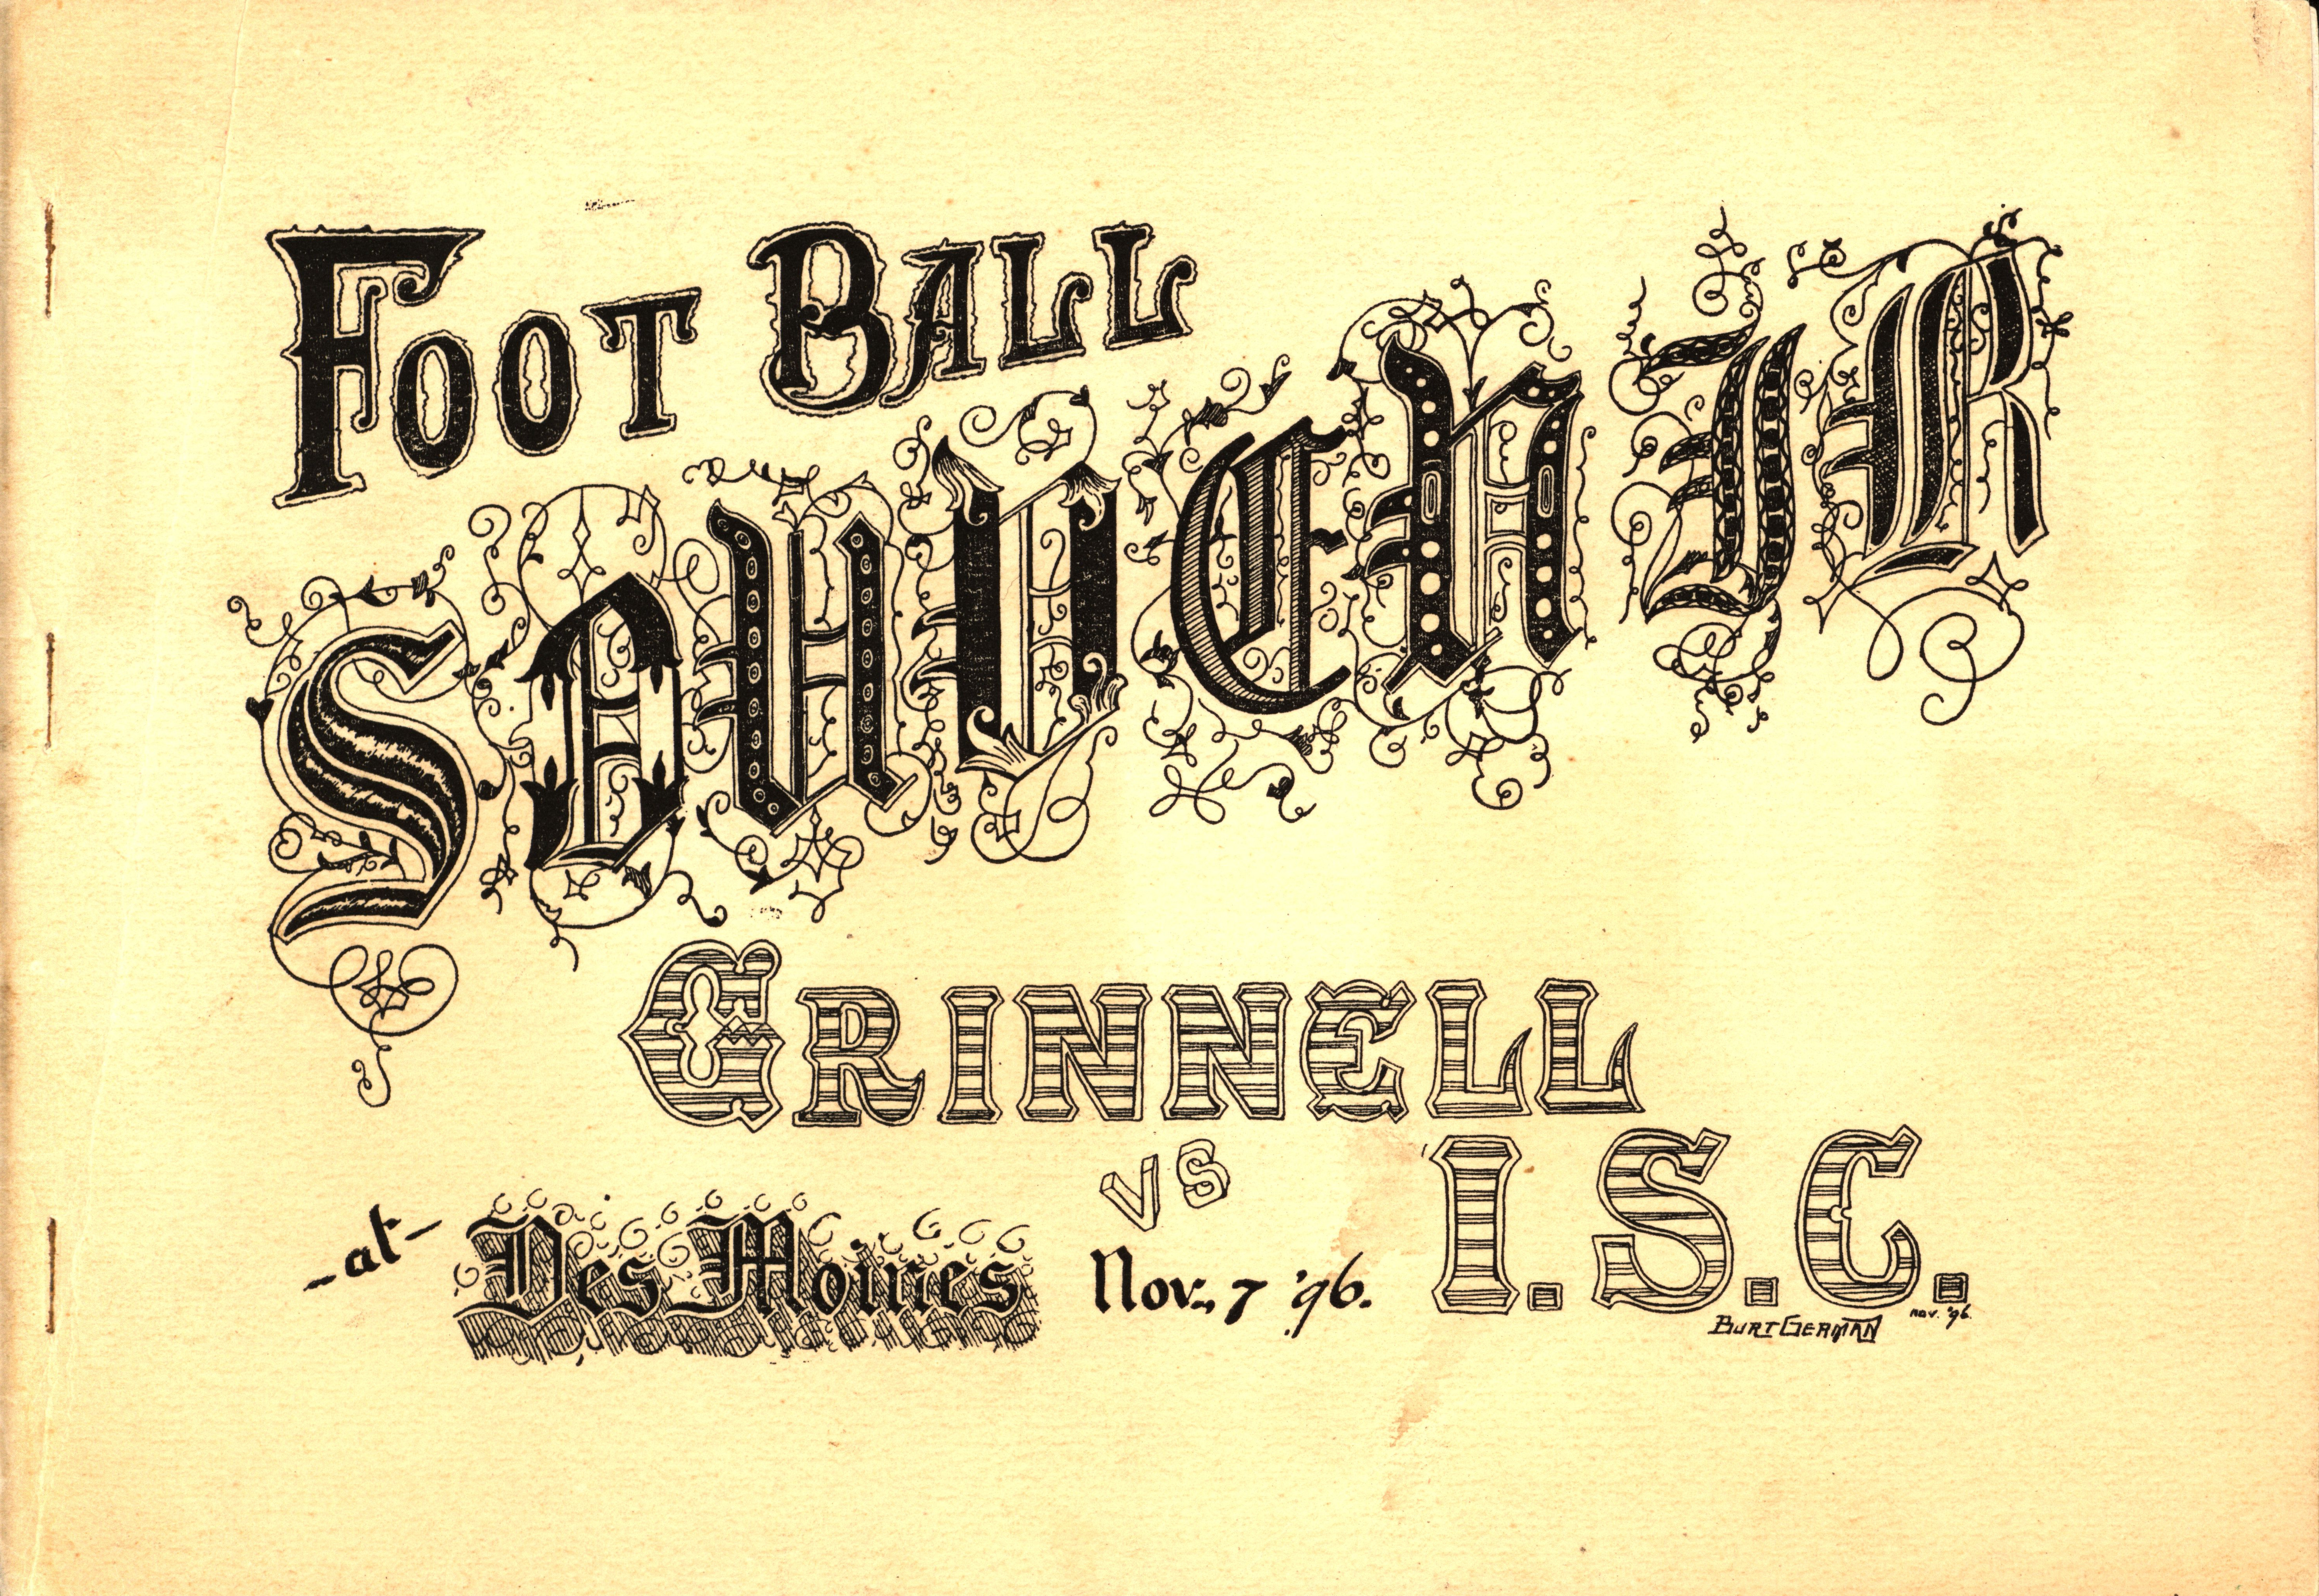 FOOT BALL
SOUVENIR
GRINNELL
VS
I.S.C.
-at- Des Moines Nov. 7 '96.
BURT GERMAN nov. '96.